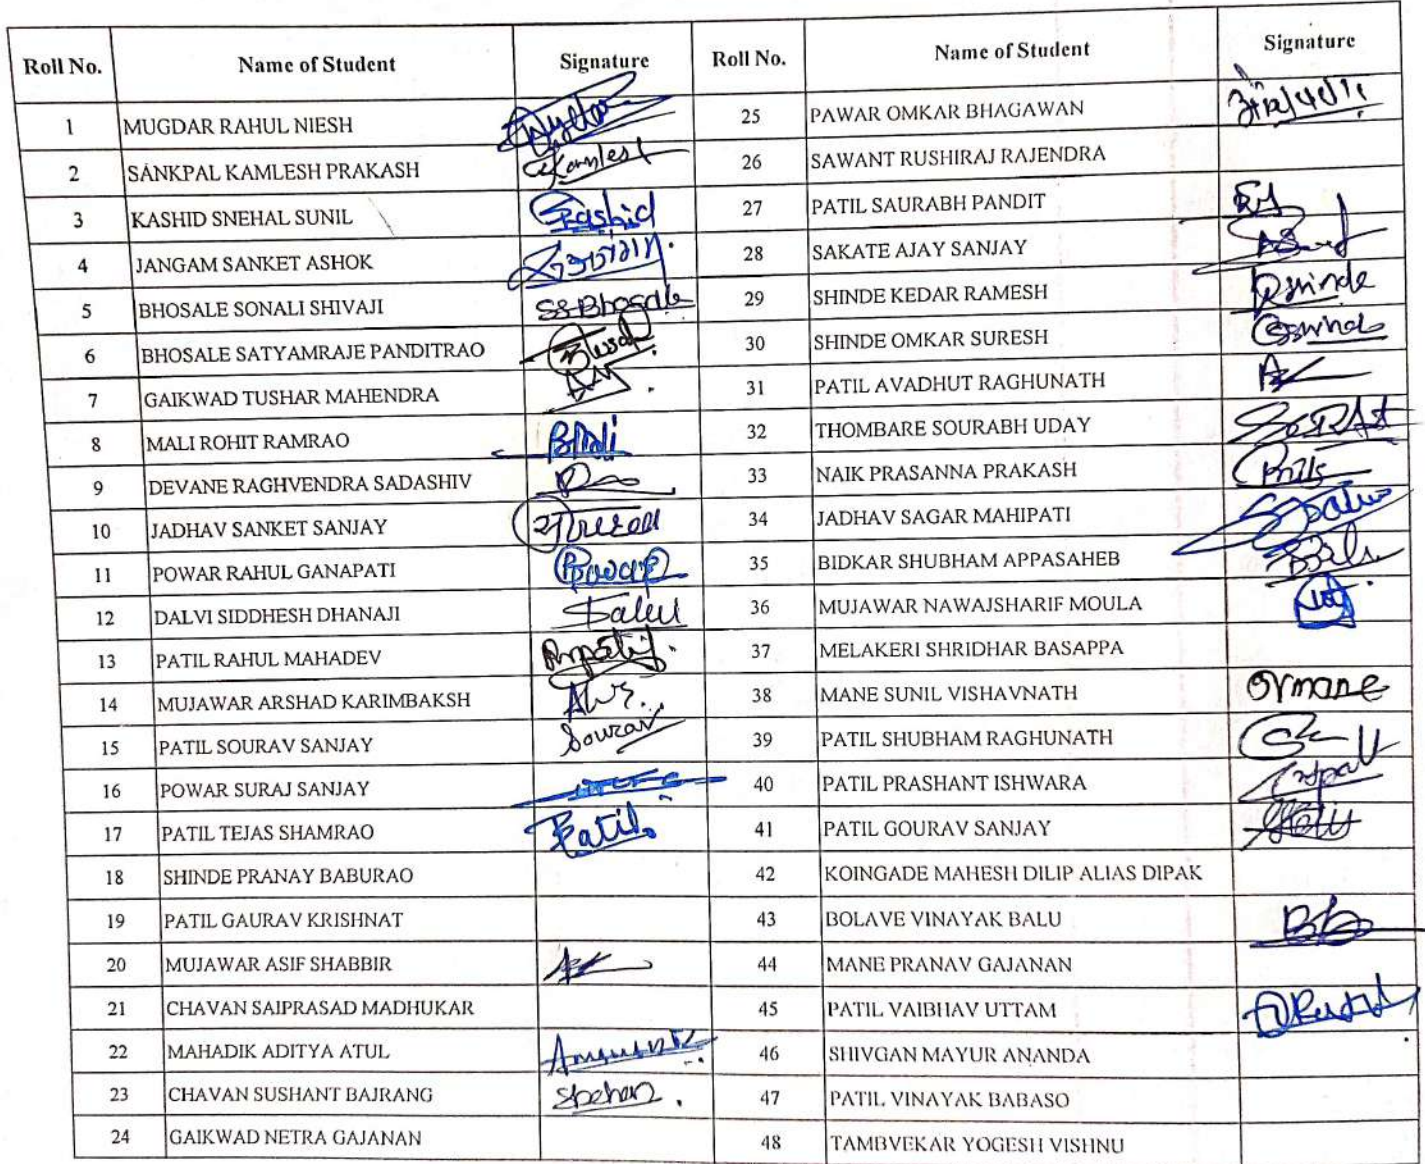 Roll No. Name of Student Signature Roll No. Name of Student Signature
1 MUGDAR RAHUL NIESH 25 PAWAR OMKAR BHAGAWAN
2 SANKPAL KAMLESH PRAKASH Kamlesh 26 SAWANT RUSHIRAJ RAJENDRA
3 KASHID SNEHAL SUNIL Kashid 27 PATIL SAURABH PANDIT
4 JANGAM SANKET ASHOK 28 SAKATE AJAY SANJAY
5 BHOSALE SONALI SHIVAJI SSBhosale 29 SHINDE KEDAR RAMESH
6 BHOSALE SATYAMRAJE PANDITRAO 30 SHINDE OMKAR SURESH
7 GAIKWAD TUSHAR MAHENDRA 31 PATIL AVADHUT RAGHUNATH
8 MALI ROHIT RAMRAO 32 THOMBARE SOURABH UDAY
9 DEVANE RAGHVENDRA SADASHIV 33 NAIK PRASANNA PRAKASH
10 JADHAV SANKET SANJAY 34 JADHAV SAGAR MAHIPATI
11 POWAR RAHUL GANAPATI 35 BIDKAR SHUBHAM APPASAHEB
12 DALVI SIDDHESH DHANAJI 36 MUJAWAR NAWAJSHARIF MOULA
13 PATIL RAHUL MAHADEV 37 MELAKERI SHRIDHAR BASAPPA
14 MUJAWAR ARSHAD KARIMBAKSH 38 MANE SUNIL VISHAVNATH
15 PATIL SOURAV SANJAY Sourav 39 PATIL SHUBHAM RAGHUNATH
16 POWAR SURAJ SANJAY 40 PATIL PRASHANT ISHWARA
17 PATIL TEJAS SHAMRAO Patil 41 PATIL GOURAV SANJAY
18 SHINDE PRANAY BABURAO 42 KOINGADE MAHESH DILIP ALIAS DIPAK
19 PATIL GAURAV KRISHNAT 43 BOLAVE VINAYAK BALU
20 MUJAWAR ASIF SHABBIR 44 MANE PRANAV GAJANAN
21 CHAVAN SAIPRASAD MADHUKAR 45 PATIL VAIBHAV UTTAM
22 MAHADIK ADITYA ATUL 46 SHIVGAN MAYUR ANANDA
23 CHAVAN SUSHANT BAJRANG 47 PATIL VINAYAK BABASO
24 GAIKWAD NETRA GAJANAN 48 TAMBVEKAR YOGESH VISHNU